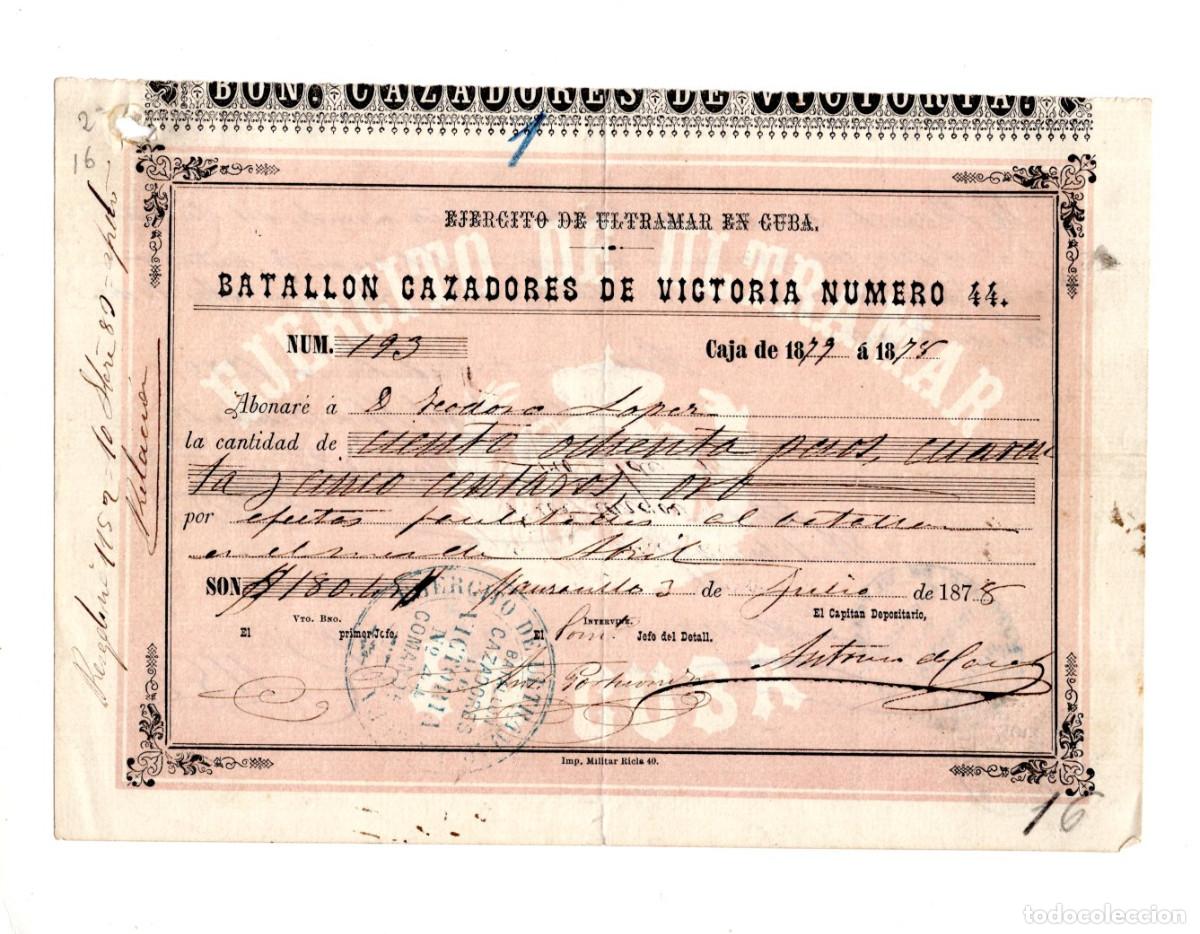 BON. CAZADORES DE VICTORIA.
1
2
16
EJERCITO DE ULTRAMAR EN CUBA.
BATALLON CAZADORES DE VICTORIA NUMERO 44.
NUM. 193 Caja de 1877 á 1878
Abonaré á D Teodoro Lopez
la cantidad de ciento ochenta pesos, cuaren
ta y cinco centavos oro
por efectos facilitados al batallon
en el mes de Abril
SON $ 180.45 Manzanillo 3 de Julio de 1878
VTO. BNO. INTERVINE. El Capitan Depositario,
El primer Jefe, El Jefe del Detall.
Antonio
EJERCITO DE ULTRAMAR
EN CUBA
EJERCITO DE ULTRAMAR
BATALLON
CAZADORES
VICTORIA
Nº 44
Imp. Militar Ricla 40.
16
Relacion
todocoleccion